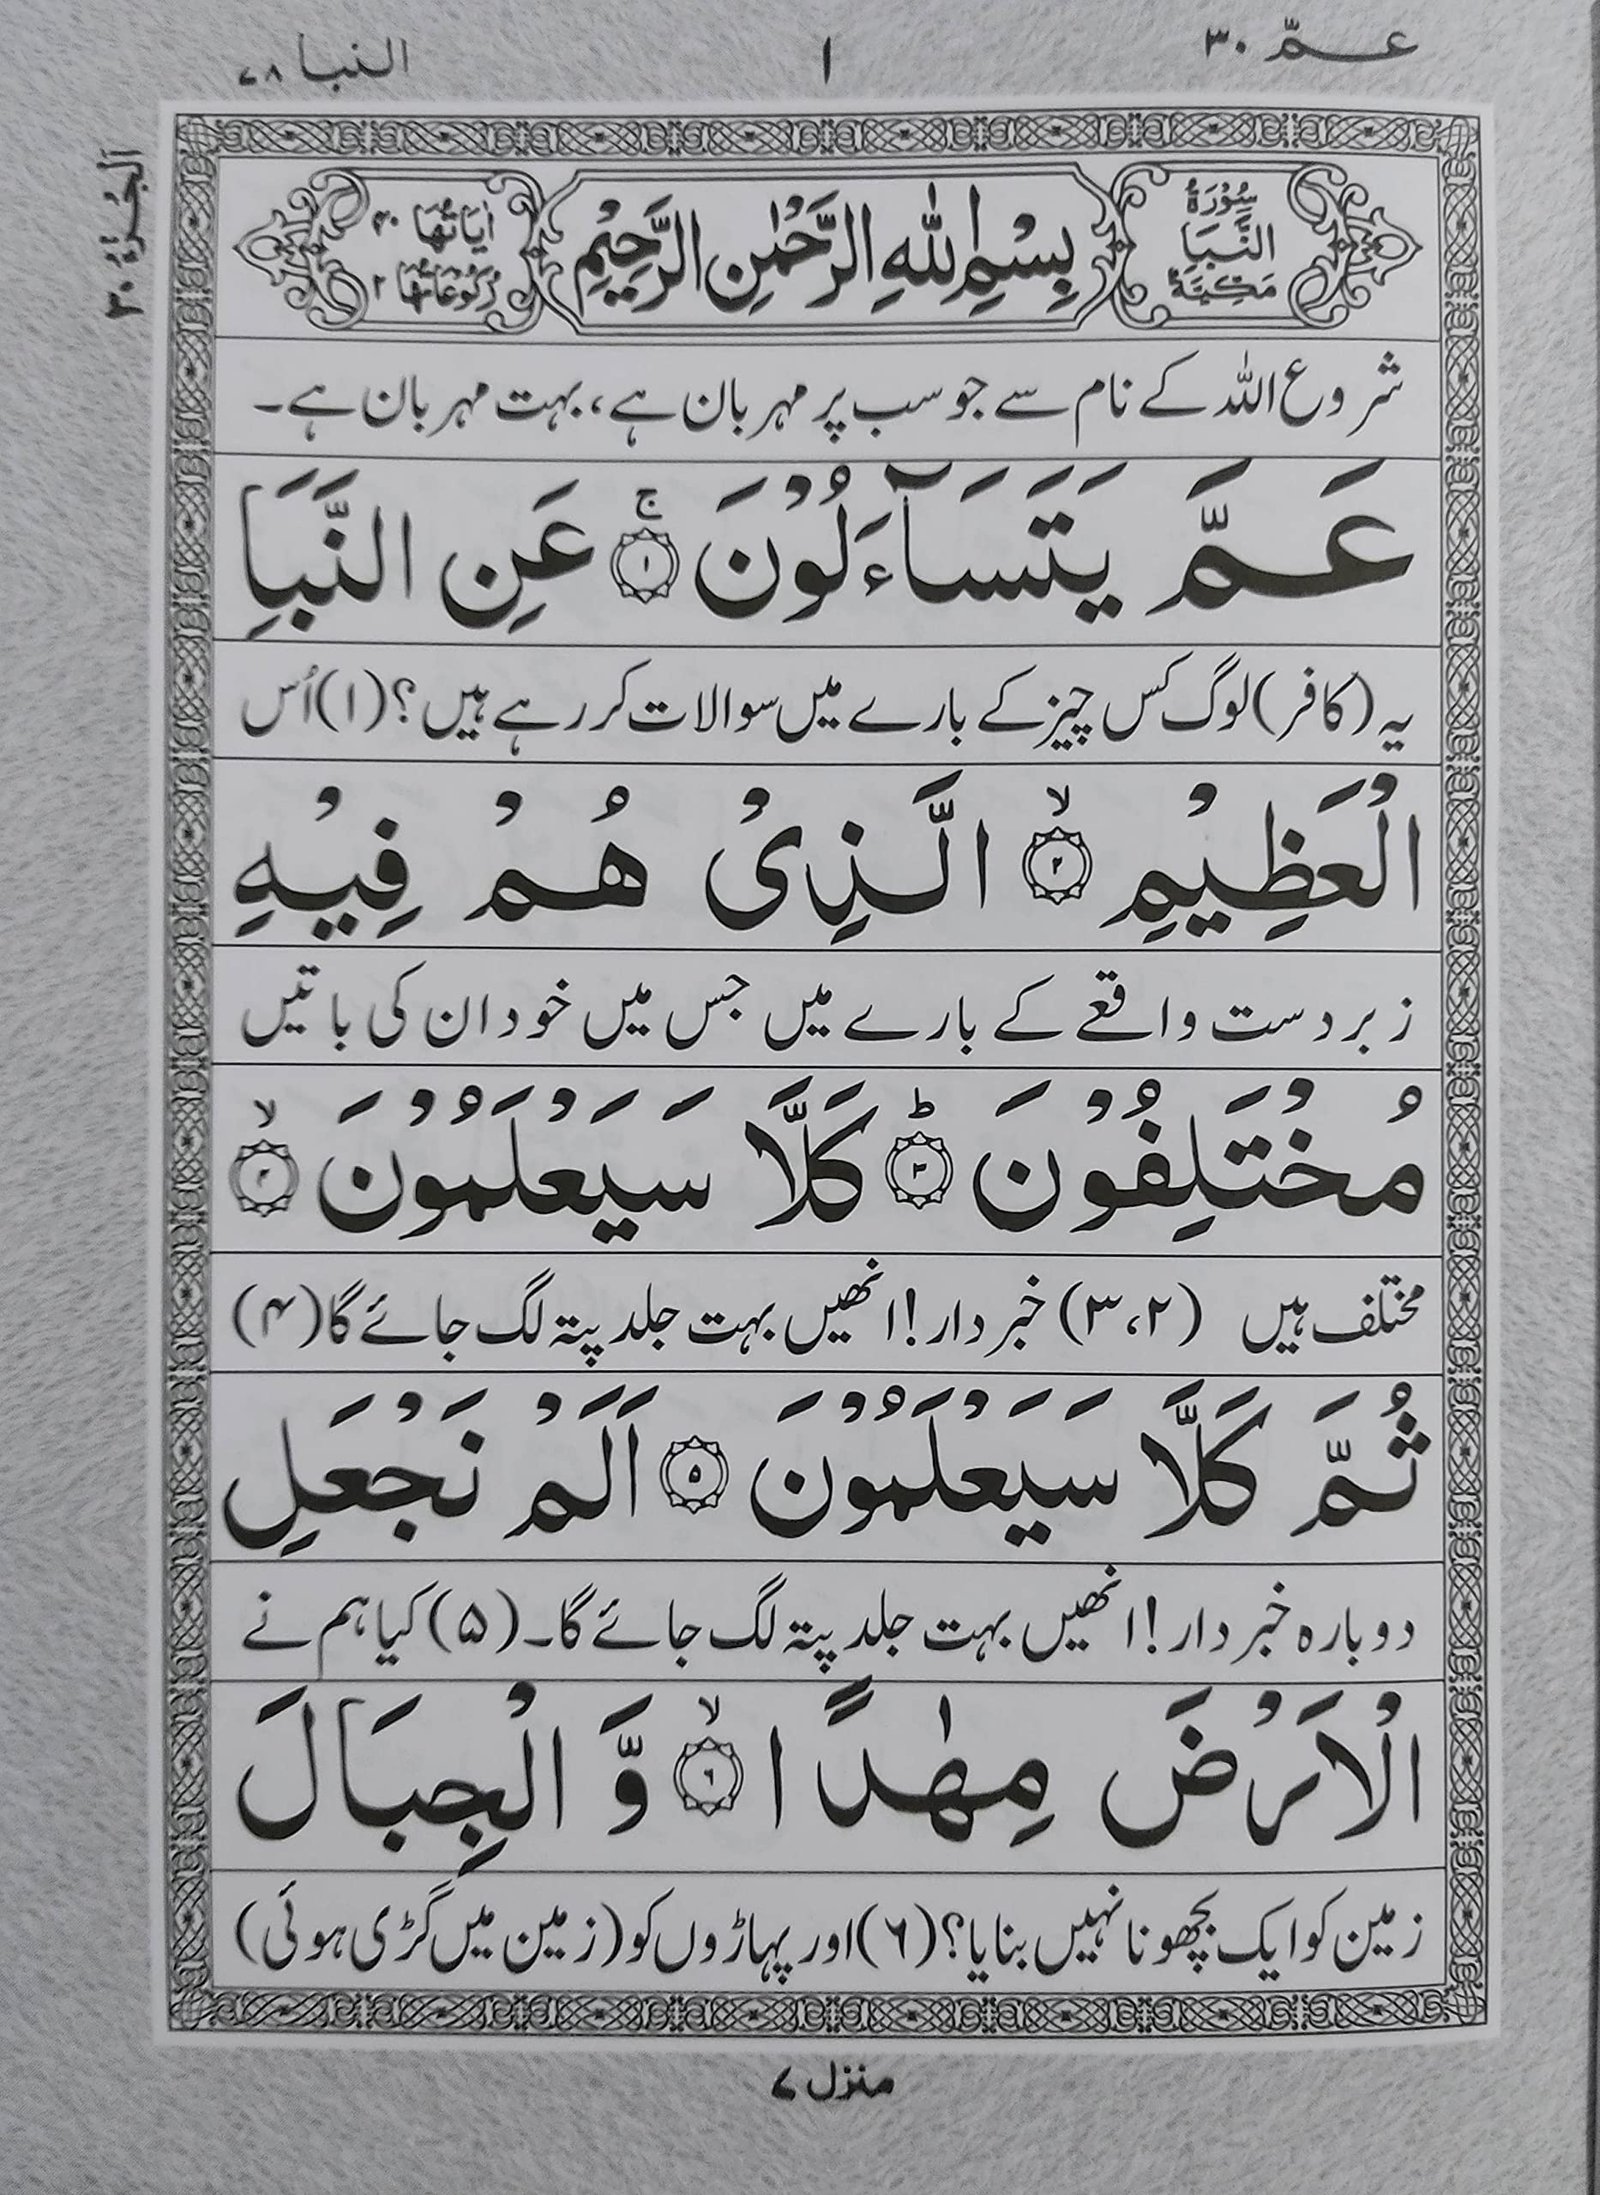 عـمّ ٣٠
١
النبا ٧٨
الجزء ٣٠
سُوْرَةُ النَّبَاِ مَكِّيَّةٌ
بِسْمِ اللّٰهِ الرَّحْمٰنِ الرَّحِيْمِ
اٰيَاتُهَا ٤٠
رُكُوْعَاتُهَا ٢
شروع اللہ کے نام سے جو سب پر مہربان ہے، بہت مہربان ہے۔
عَمَّ يَتَسَآءَلُوْنَ ۚ‏ ﴿۱﴾ عَنِ النَّبَاِ
یہ (کافر) لوگ کس چیز کے بارے میں سوالات کر رہے ہیں؟ (۱) اُس
الْعَظِيْمِ ۙ‏ ﴿۲﴾ الَّذِىْ هُمْ فِيْهِ
زبردست واقعے کے بارے میں جس میں خود ان کی باتیں
مُخْتَلِفُوْنَ ؕ‏ ﴿۳﴾ كَلَّا سَيَعْلَمُوْنَ ۙ‏ ﴿۴﴾
مختلف ہیں (۳،۲) خبردار! انھیں بہت جلد پتہ لگ جائے گا (۴)
ثُمَّ كَلَّا سَيَعْلَمُوْنَ ﴿۵﴾ اَلَمْ نَجْعَلِ
دوبارہ خبردار! انھیں بہت جلد پتہ لگ جائے گا۔ (۵) کیا ہم نے
الْاَرْضَ مِهٰدًا ۙ‏ ﴿۶﴾ وَّ الْجِبَالَ
زمین کو ایک بچھونا نہیں بنایا؟ (٦) اور پہاڑوں کو (زمین میں گڑی ہوئی)
منزل ٧